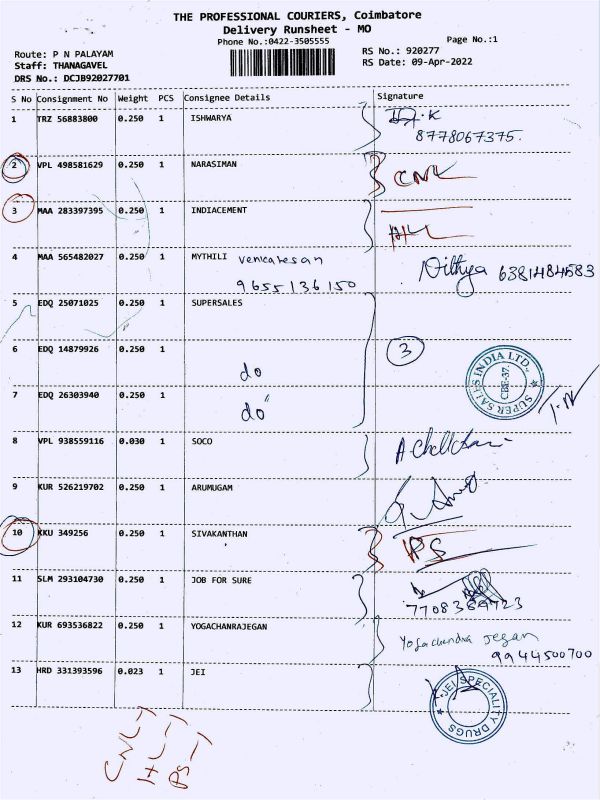 THE PROFESSIONAL COURIERS, Coimbatore
Delivery Runsheet - MO
Phone No.:0422-3505555
Page No.:1
Route: P N PALAYAM
RS No.: 920277
Staff: THANAGAVEL
RS Date: 09-Apr-2022
DRS No.: DCJB92027701
S No Consignment No Weight PCS Consignee Details Signature
1 TRZ 56883800 0.250 1 ISHWARYA
8778067375.
2 VPL 498581629 0.250 1 NARASIMAN
3 MAA 283397395 0.250 1 INDIACEMENT
4 MAA 565482027 0.250 1 MYTHILI venkatesan Nithya 6381484583
9655136150
5 EDQ 25071025 0.250 1 SUPERSALES
6 EDQ 14879926 0.250 1 do 3
SUPER SALES INDIA LTD., CBE-37.
7 EDQ 26303940 0.250 1 do
8 VPL 938559116 0.030 1 SOCO
9 KUR 526219702 0.250 1 ARUMUGAM
10 KKU 349256 0.250 1 SIVAKANTHAN
11 SLM 293104730 0.250 1 JOB FOR SURE
7708369723
12 KUR 693536822 0.250 1 YOGACHANRAJEGAN Yogachandra Jegan
9944500700
13 HRD 331393596 0.023 1 JEI
JEI SPECIALITY DRUGS